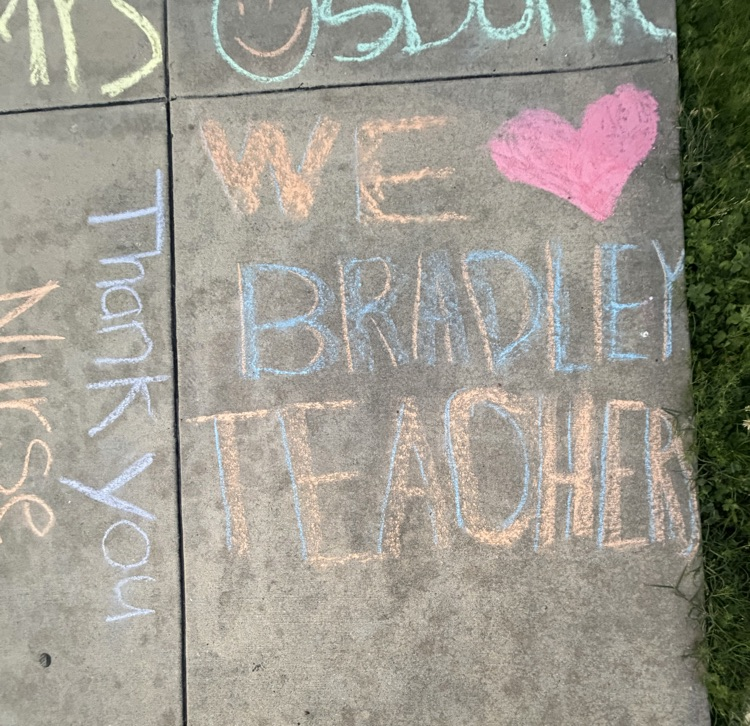 WE
BRADLEY
TEACHERS
Thank you
Nurse